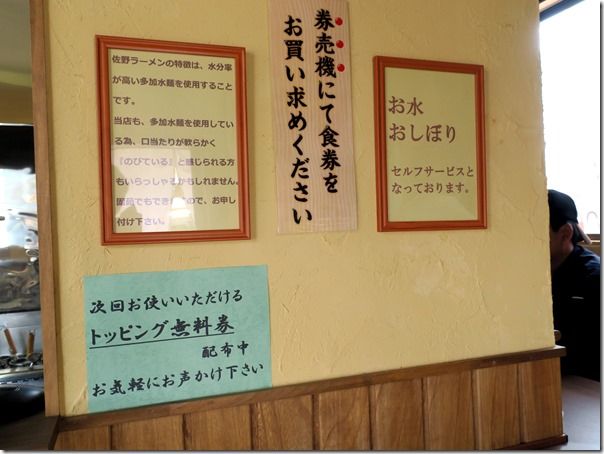 佐野ラーメンの特徴は、水分率
が高い多加水麺を使用すること
です。
当店も、多加水麺を使用してい
る為、口当たりが軟らかく
『のびている』と感じられる方
もいらっしゃるかもしれません。
固茹でもできますので、お申し
付け下さい。
券売機にて食券を
お買い求めください
お水
おしぼり
セルフサービスと
なっております。
次回お使いいただける
トッピング無料券
配布中
お気軽にお声かけ下さい